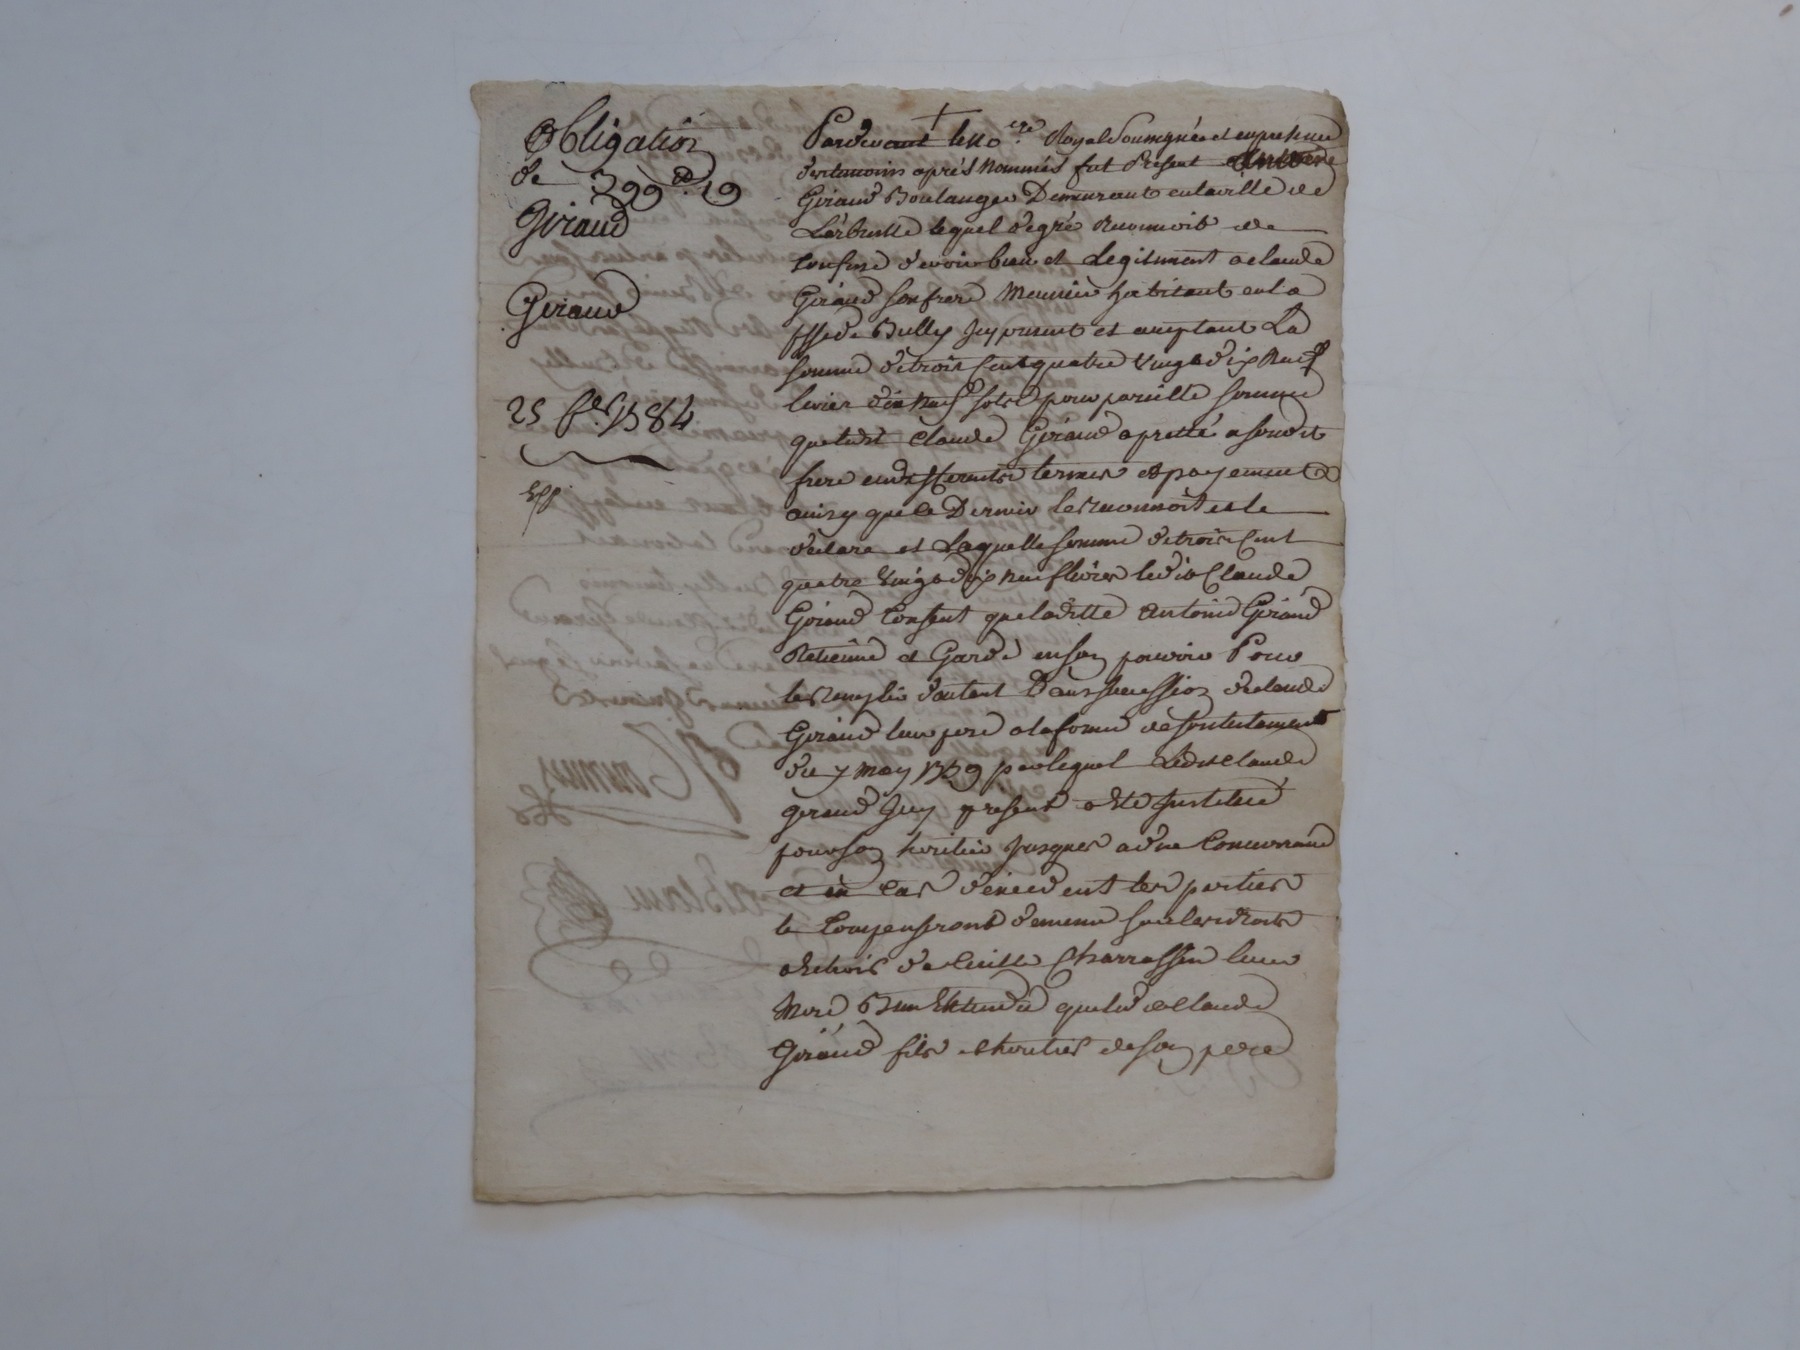 Obligation
de 399lt. 19
Giraud
Giraud
25 1784
Pardevant le no.re Royal Soussigné et en presence
des temoins aprés Nommés fut Present Antoine
Giraud Boulanger Demeurant en la ville de
L'arbresle lequel de gré Reconnoit
Confesse devoir bien et Legitimement a claude
Giraud son frere habitant en la
psse de Bully Icy present et acceptant La
somme de trois Cent quatre Vingt dix Neuf
livres dix Neuf sols pour pareille somme
que ledit Claude Giraud a pretté a son dit
frere en differents termes et payements
ainsy que ce Dernier le reconnoit et le
declare et Laquelle somme de trois Cent
quatre Vingt dix neuf livres ledit Claude
Giraud Consent que ledit Antoine Giraud
Retienne et Garde en son pouvoir Pour
d'autant Dans succession de claude
Giraud leur pere a la forme de son testament
du 7 may par lequel Ledit claude
Giraud Icy present a eté Institué
pour son heritier Jusques a due Concurrance
et en Cas d'excedent les parties
le Compenseront de meme sur les droits
de Charrassin leur
Mere Bien Entendu que led. claude
Giraud fils et heritier de son pere